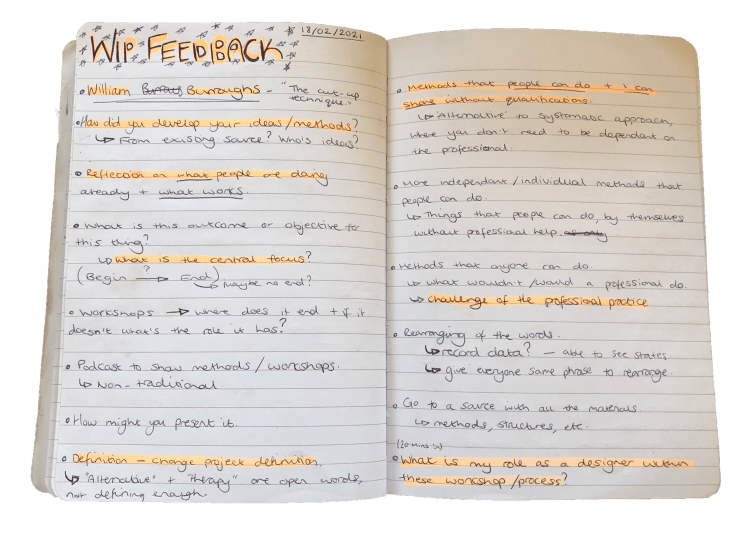 18/02/2021
WIP FEEDBACK
• William Burroughs - "The cut-up
technique."
• How did you develop your ideas/methods?
↳ From existing source? Who's ideas?
• Reflection on what people are doing
already + what works.
• What is this outcome or objective for
this thing?
↳ What is the central focus?
(Begin ?→ End)
↳ Maybe no end?
• Workshops → where does it end + if it
doesn't what's the role it has?
• Podcast to show methods / workshops.
↳ Non-traditional
• How might you present it.
• Definition - change project definition.
↳ "Alternative" + "Therapy" are open words,
not defining enough.
• Methods that people can do + I can
share without qualifications.
↳ 'Alternative' to systematic approach,
where you don't need to be dependant on
the professional.
• More independant/individual methods that
people can do.
↳ Things that people can do, by themselves
without professional help.
• Methods that anyone can do.
↳ What wouldn't/would a professional do.
↳ challenge of the professional practice
• Rearranging of the words.
↳ record data? - able to see states.
↳ give everyone same phrase to rearrange.
• Go to a source with all the materials.
↳ methods, structures, etc.
(20 mins in)
• What is my role as a designer within
these workshop/process?